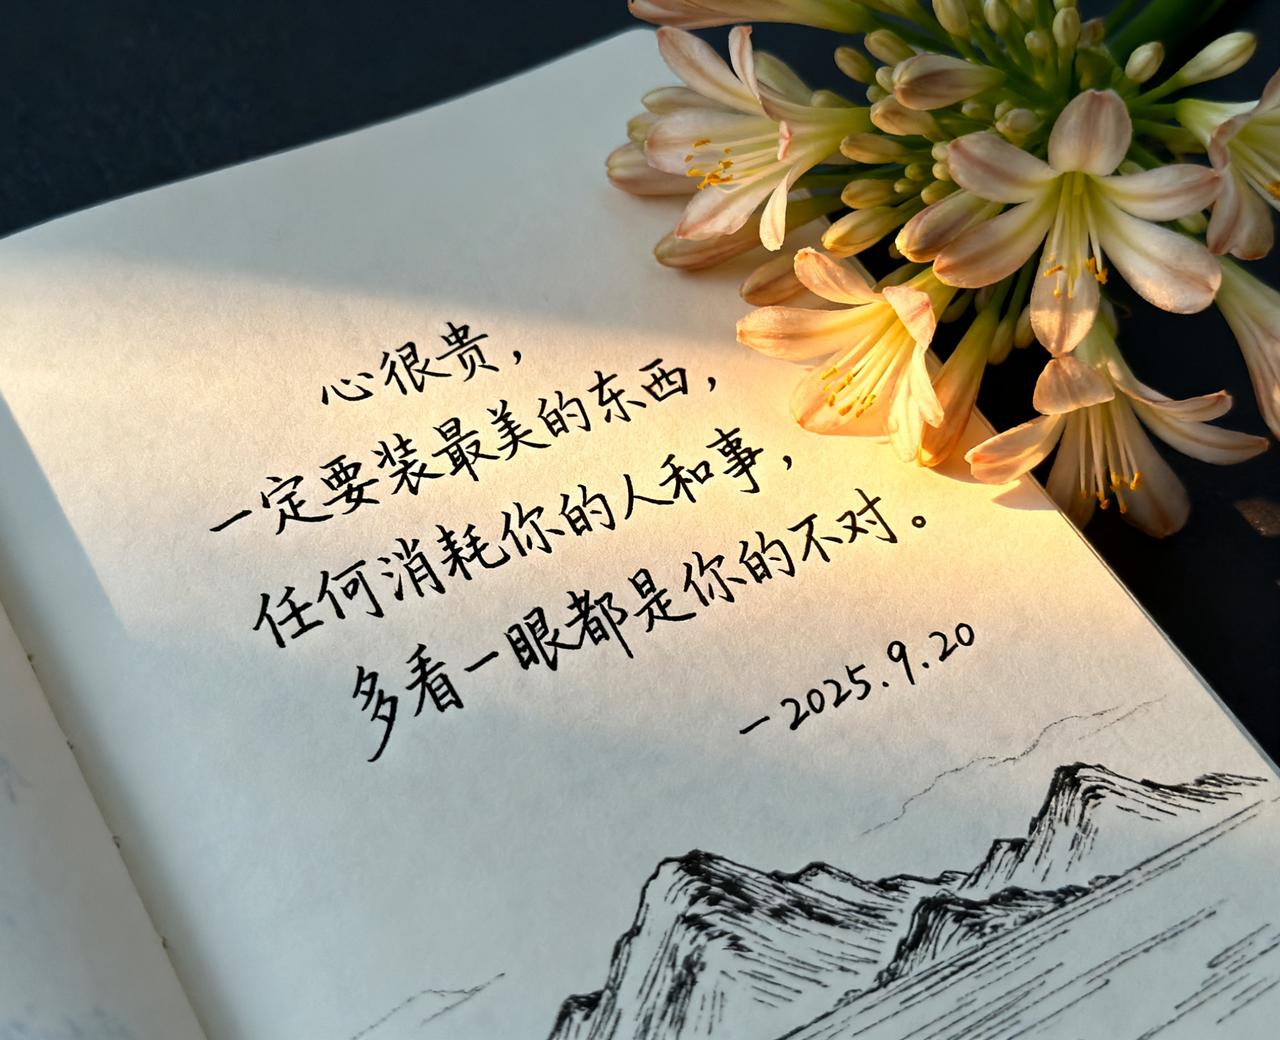 心很贵，
一定要装最美的东西，
任何消耗你的人和事，
多看一眼都是你的不对。
—2025.9.20